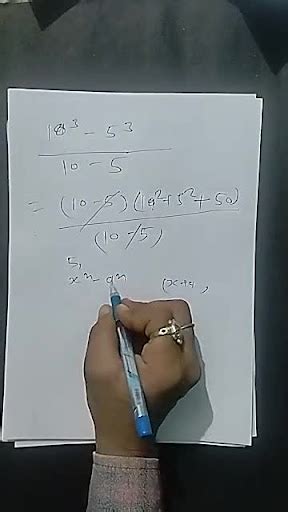 10³ - 5³
10 - 5
= (10-5) (10²+5²+50)
(10-5)
5,
xⁿ - aⁿ (x+a,